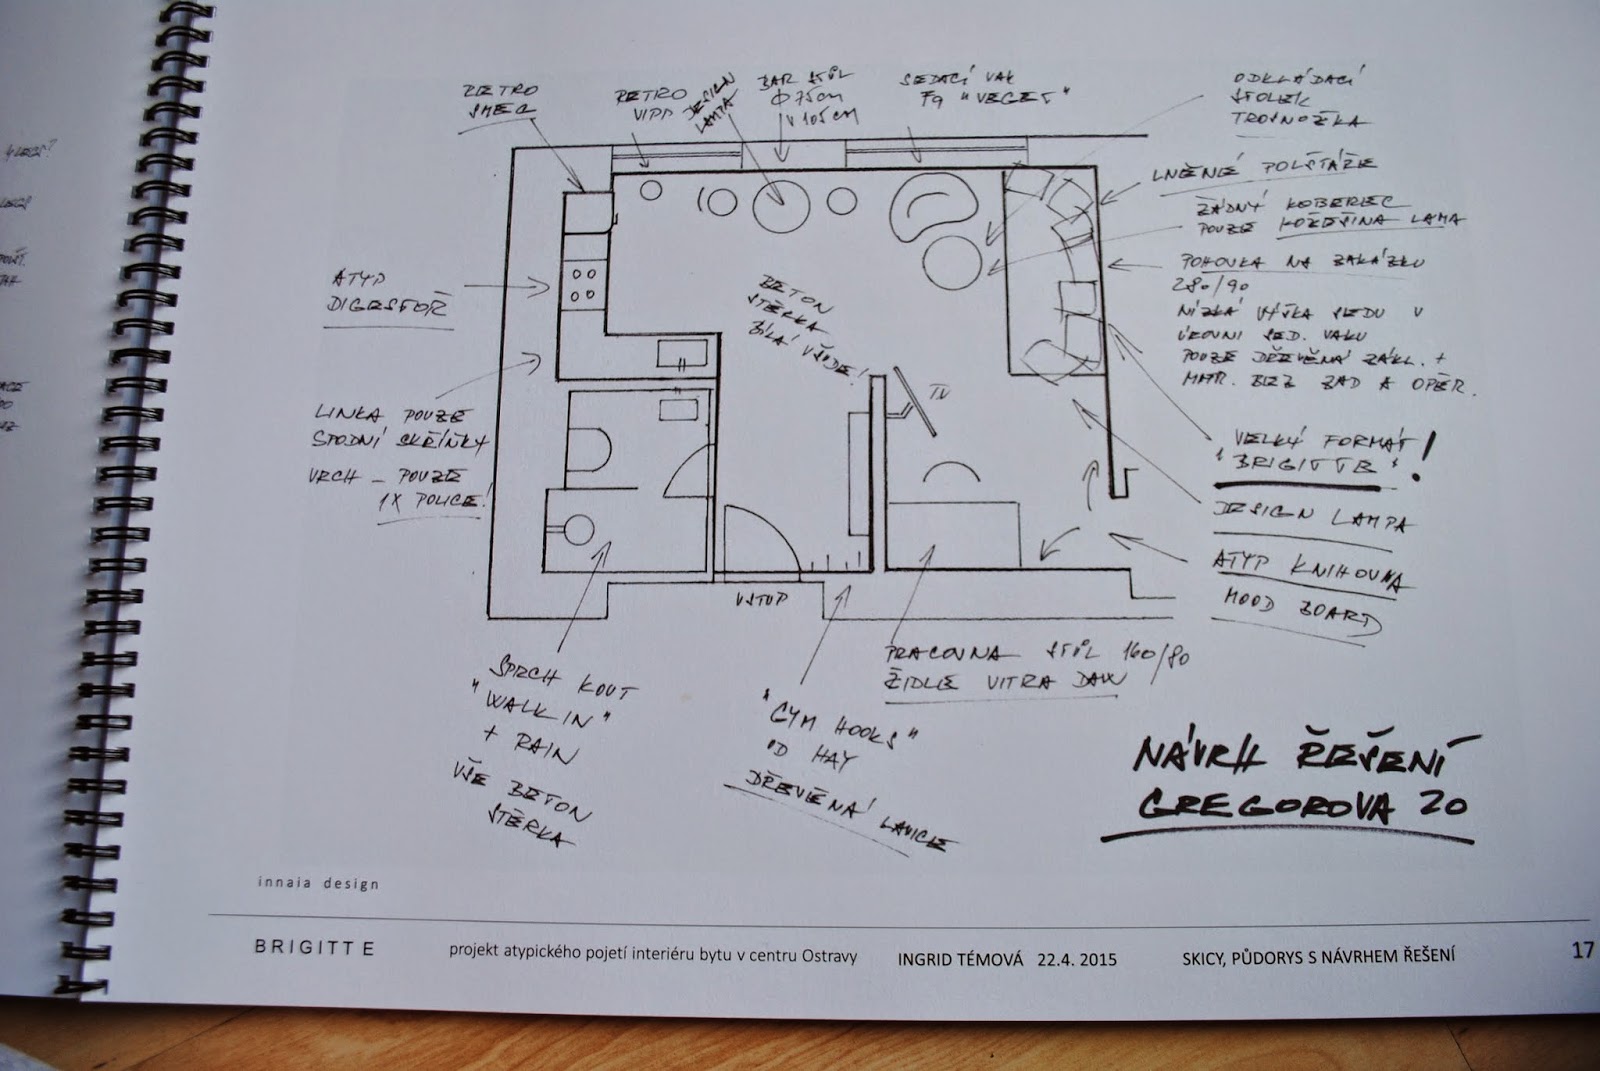 RETRO
SMEG
RETRO
VIPP
DESIGN
LAMPA
BAR STŮL
Ø 75cm
V 105cm
SEDACÍ VAK
"VEGET"
ODKLÁDACÍ
STOLEK
TROJNOŽKA
LNĚNÉ POLŠTÁŘE
ŽÁDNÝ KOBEREC
POUZE KOŽEŠINA LAMA
POHOVKA NA ZAKÁZKU
280/90
NÍZKÁ VÝŠKA SEDU V
ÚROVNI SED. VAKU
POUZE DŘEVĚNÁ ZÁKL. +
MATR. BEZ ZAD A OPĚR.
ATYP
DIGESTOŘ
BETON
STĚRKA
BÍLÁ VŠUDE!
TV
LINKA POUZE
SPODNÍ SKŘÍŇKY
VRCH – POUZE
1X POLICE!
VELKÝ FORMÁT
"BRIGITTE"!
DESIGN LAMPA
ATYP KNIHOVNA
MOOD BOARD
VSTUP
PRACOVNA STŮL 160/80
ŽIDLE VITRA DAW
SPRCH KOUT
"WALK IN"
+ RAIN
VŠE BETON
STĚRKA
"GYM HOOKS"
OD HAY
DŘEVĚNÁ LAVICE
NÁVRH ŘEŠENÍ
GREGOROVA 20
innaia design
BRIGITTE projekt atypického pojetí interiéru bytu v centru Ostravy INGRID TÉMOVÁ 22.4. 2015 SKICY, PŮDORYS S NÁVRHEM ŘEŠENÍ 17